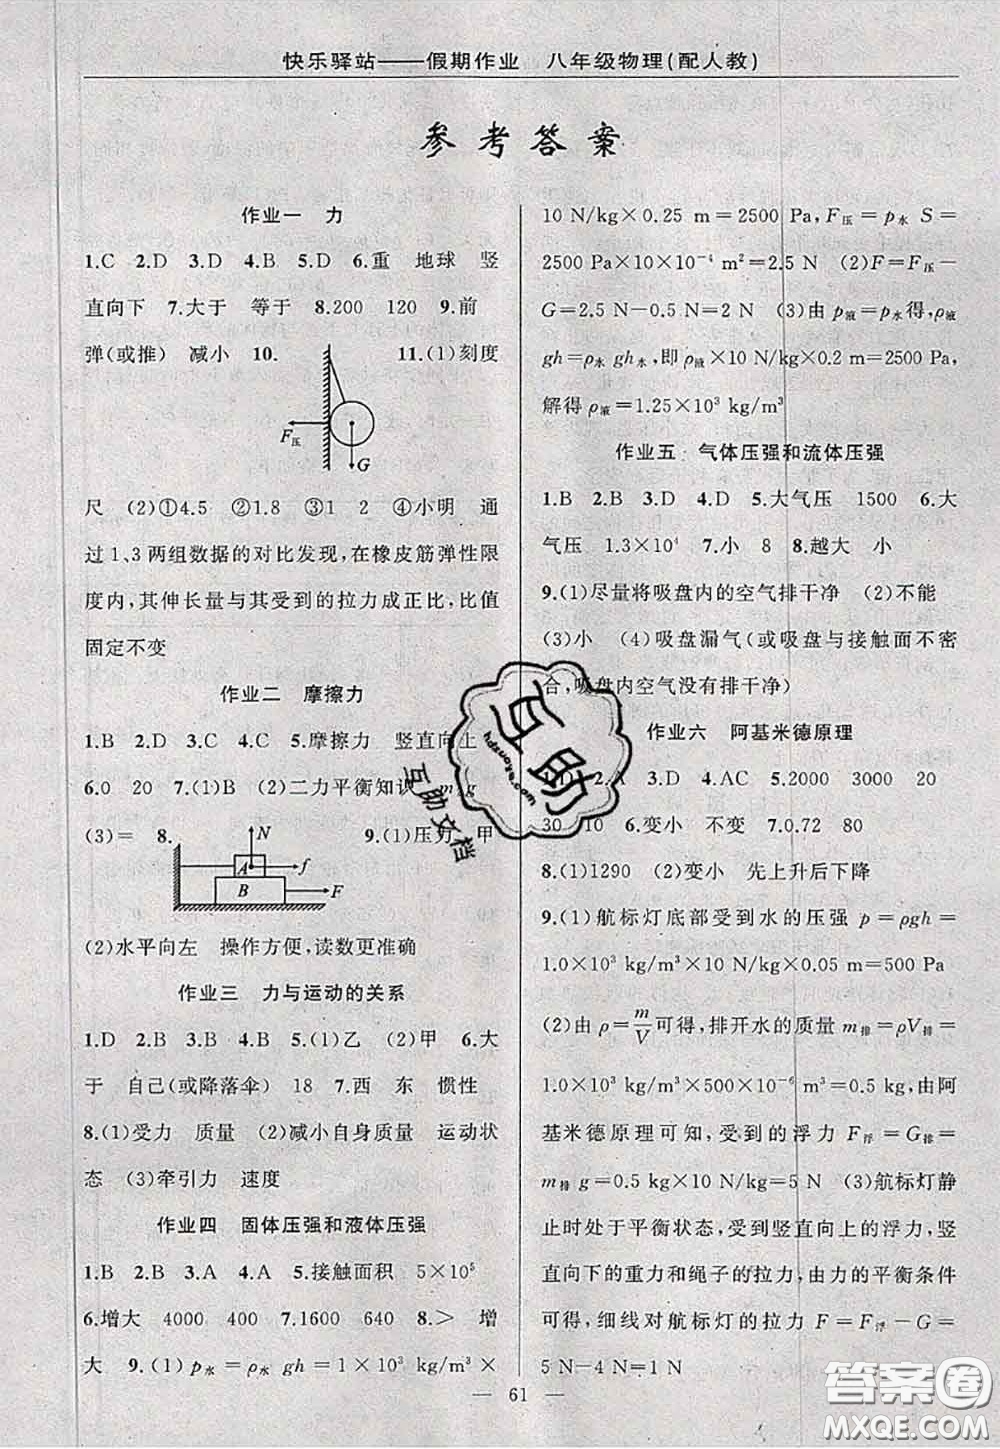 快乐驿站——假期作业 八年级物理(配人教)
参考答案
作业一 力
1.C 2.D 3.D 4.B 5.D 6.重 地球 竖
直向下 7.大于 等于 8.200 120 9.前
弹(或推) 减小 10. 11.(1)刻度
F压
G
尺 (2)①4.5 ②1.8 ③1 2 ④小明 通
过1、3两组数据的对比发现,在橡皮筋弹性限
度内,其伸长量与其受到的拉力成正比,比值
固定不变
作业二 摩擦力
1.B 2.D 3.C 4.C 5.摩擦力 竖直向上
6.0 20 7.(1)B (2)二力平衡知识 m g
(3)= 8. 9.(1)压力 甲
N
A f
B F
(2)水平向左 操作方便,读数更准确
作业三 力与运动的关系
1.D 2.A 3.B 4.B 5.(1)乙 (2)甲 6.大
于 自己(或降落伞) 18 7.西 东 惯性
8.(1)受力 质量 (2)减小自身质量 运动状
态 (3)牵引力 速度
作业四 固体压强和液体压强
1.B 2.B 3.A 4.A 5.接触面积 5×10⁵
6.增大 4000 400 7.1600 640 8.> 增
大 9.(1) p水=ρ水 gh=1×10³ kg/m³×
10 N/kg×0.25 m=2500 Pa,F压=p水 S=
2500 Pa×10×10⁻⁴ m²=2.5 N (2)F=F压−
G=2.5 N−0.5 N=2 N (3)由 p液=p水得,ρ液
gh=ρ水 gh水,即 ρ液×10 N/kg×0.2 m=2500 Pa,
解得 ρ液=1.25×10³ kg/m³
作业五 气体压强和流体压强
1.B 2.B 3.D 4.D 5.大气压 1500 6.大
气压 1.3×10⁴ 7.小 8 8.越大 小
9.(1)尽量将吸盘内的空气排干净 (2)不能
(3)小 (4)吸盘漏气(或吸盘与接触面不密
合,吸盘内空气没有排干净)
作业六 阿基米德原理
1.D 2.A 3.D 4.AC 5.2000 3000 20
30 10 6.变小 不变 7.0.72 80
8.(1)1290 (2)变小 先上升后下降
9.(1)航标灯底部受到水的压强 p=ρgh=
1.0×10³ kg/m³×10 N/kg×0.05 m=500 Pa
(2)由 ρ=m/V可得,排开水的质量 m排=ρV排=
1.0×10³ kg/m³×500×10⁻⁶ m³=0.5 kg,由阿
基米德原理可知,受到的浮力 F浮=G排=
m排 g=0.5 kg×10 N/kg=5 N (3)航标灯静
止时处于平衡状态,受到竖直向上的浮力,竖
直向下的重力和绳子的拉力,由力的平衡条件
可得,细线对航标灯的拉力 F=F浮−G=
5 N−4 N=1 N
— 61 —
互助
hdzuoye.com
互助文档
答案圈
MXQE.COM